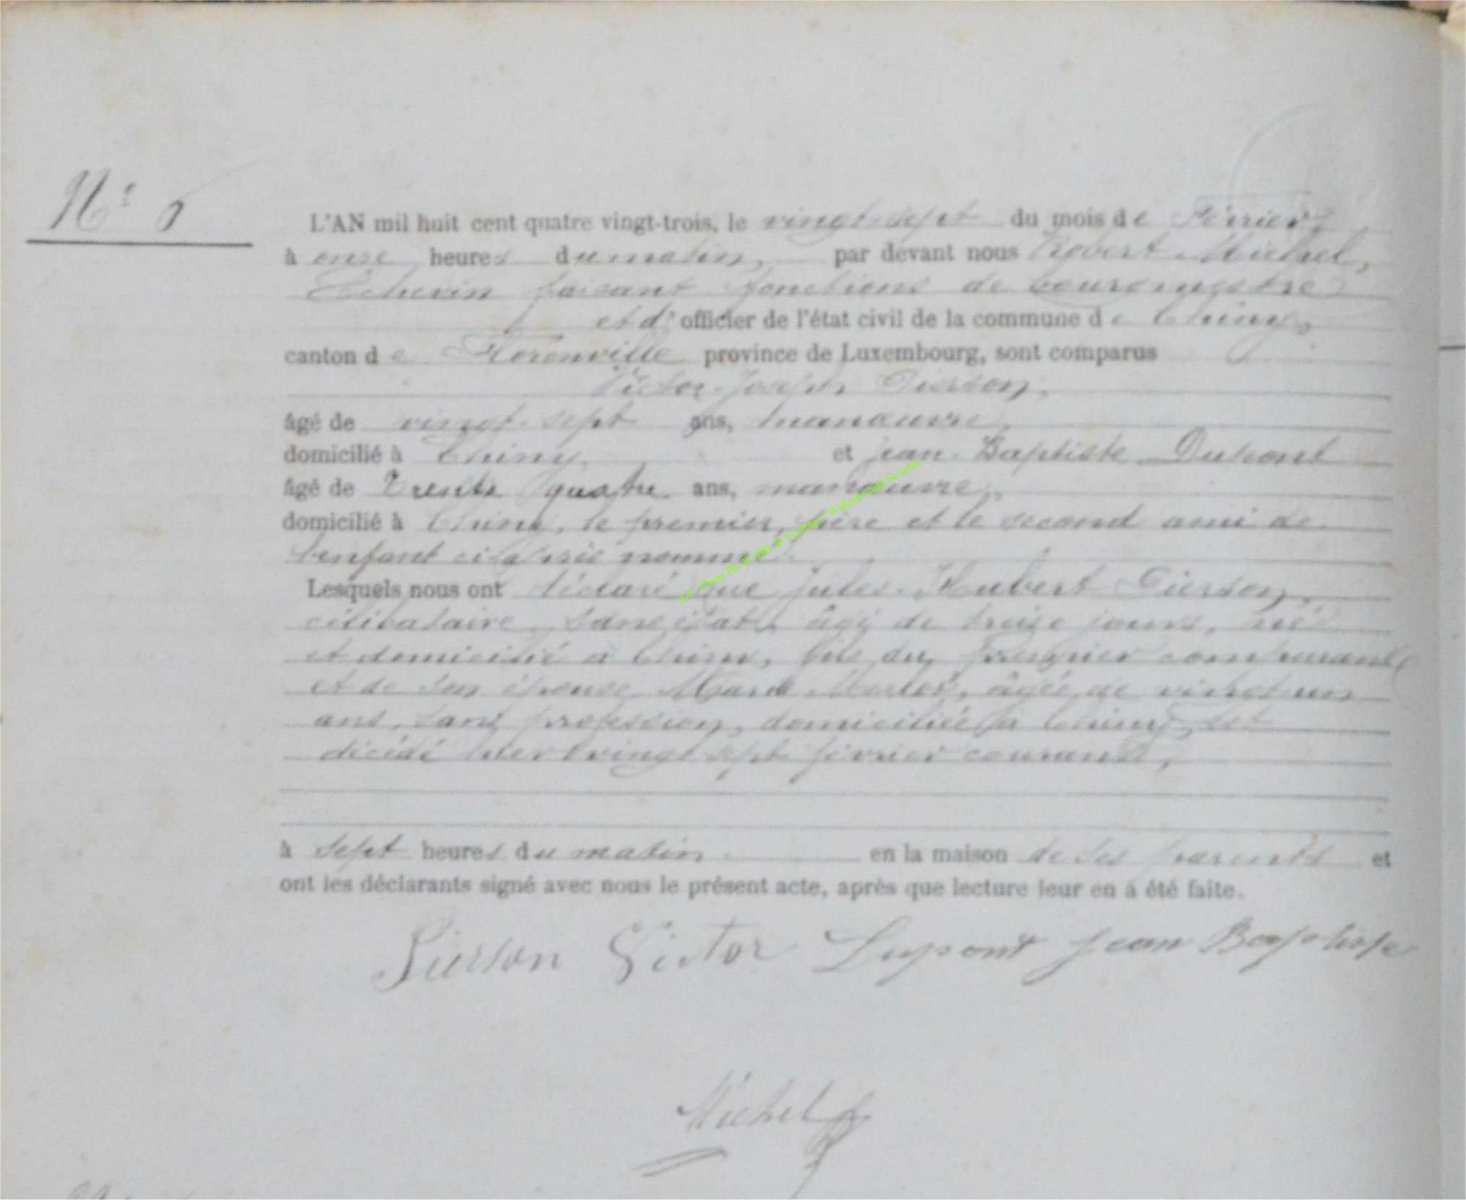 N° 6
L'AN mil huit cent quatre vingt-trois, le vingt-sept du mois de Février,
à onze heures du matin, par devant nous Michel,
Echevin faisant fonctions de bourgmestre
et d'officier de l'état civil de la commune de Chiny,
canton de Florenville province de Luxembourg, sont comparus
Victor-Joseph Pierson,
âgé de vingt-sept ans, manœuvre,
domicilié à Chiny, et jean-Baptiste Dupont
âgé de Trente quatre ans, manœuvre,
domicilié à Chiny, le premier, père et le second ami de
l'enfant ci-après nommé.
Lesquels nous ont déclaré que jules-Hubert Pierson,
célibataire, sans état, âgé de treize jours, né
et domicilié à Chiny, fils du premier comparant
et de son épouse Marie, âgée de vingt-un
ans, sans profession, domiciliée à Chiny, est
décédé vingt-sept février courant,
à sept heures du matin en la maison de ses parents et
ont les déclarants signé avec nous le présent acte, après que lecture leur en a été faite.
Pierson Victor Dupont jean Baptiste
Michel